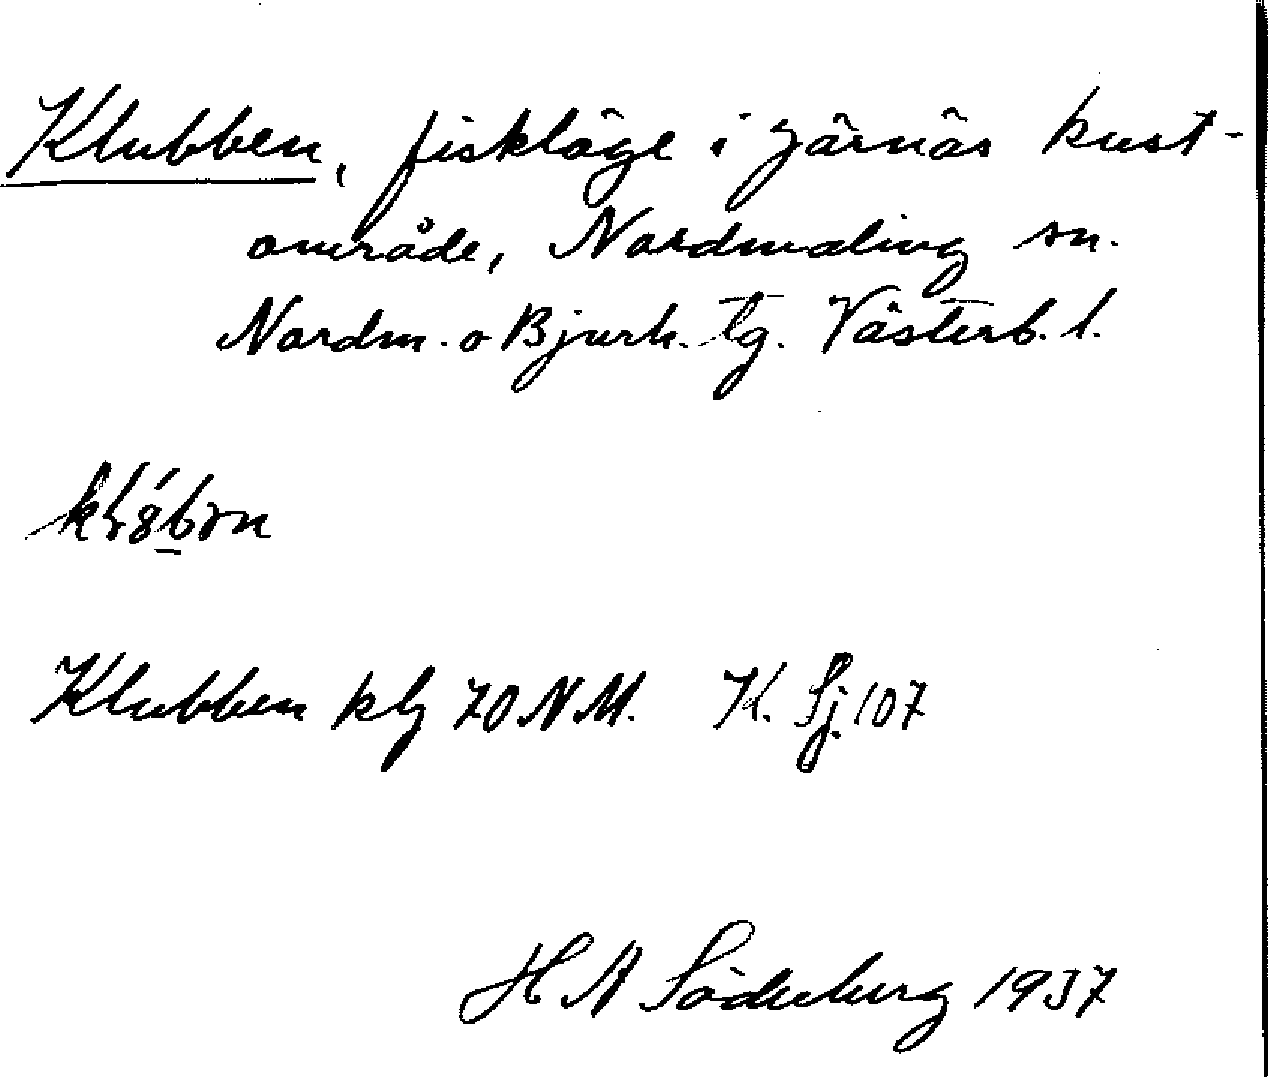 Klubben, fiskläge i Järnäs kust-
område, Nordmaling sn.
Nordm. o Bjurh. tg. Västerb. l.
Klubben klg 70 NM. K. Sj. 107
H A Söderberg 1937